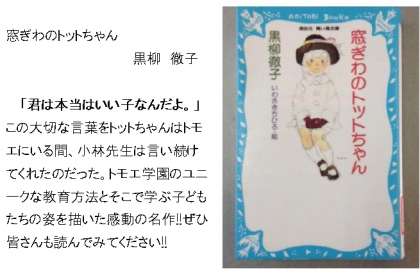 窓ぎわのトットちゃん
黒柳　徹子
「君は本当はいい子なんだよ。」
この大切な言葉をトットちゃんはトモ
エにいる間、小林先生は言い続け
てくれたのだった。トモエ学園のユニ
ークな教育方法とそこで学ぶ子ども
たちの姿を描いた感動の名作!!ぜひ
皆さんも読んでみてください!!
窓ぎわのトットちゃん
黒柳徹子
いわさきちひろ・絵
講談社 青い鳥文庫